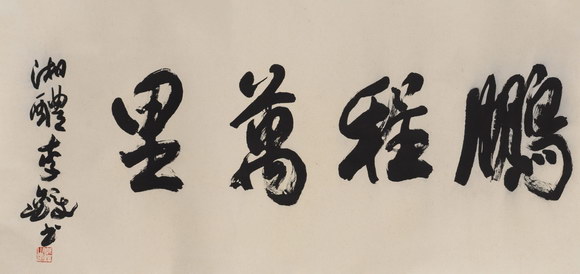 鵬程萬里
湘醴李鐸书